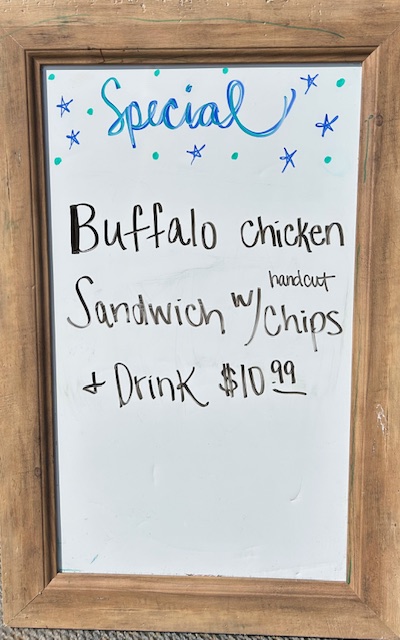 Special
Buffalo chicken
handcut
Sandwich w/ Chips
+ Drink $10.99